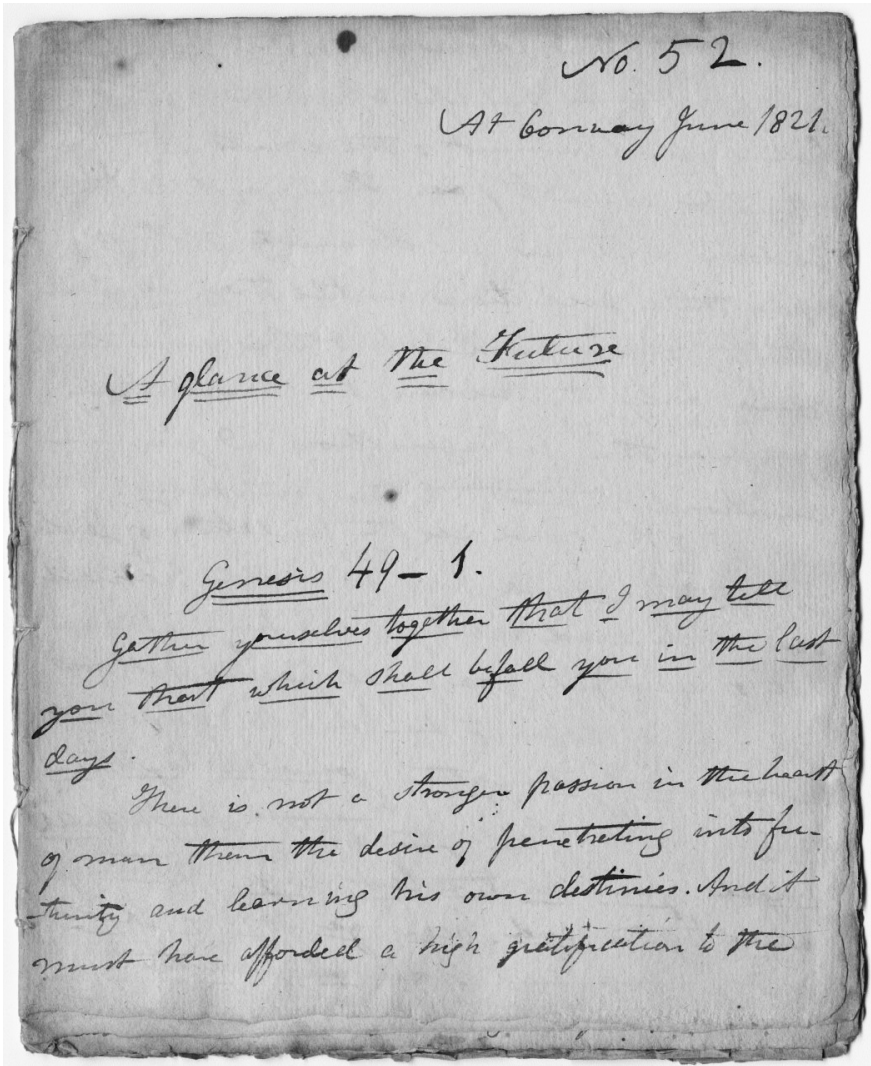 No. 52.
At Conway June 1821.
A glance at the Future
Genesis 49-1.
Gather yourselves together that I may tell
you that which shall befall you in the last
days.
There is not a stronger passion in the heart
of man than the desire of penetrating into fu-
-turity and learning his own destinies. And it
must have afforded a high gratification to the